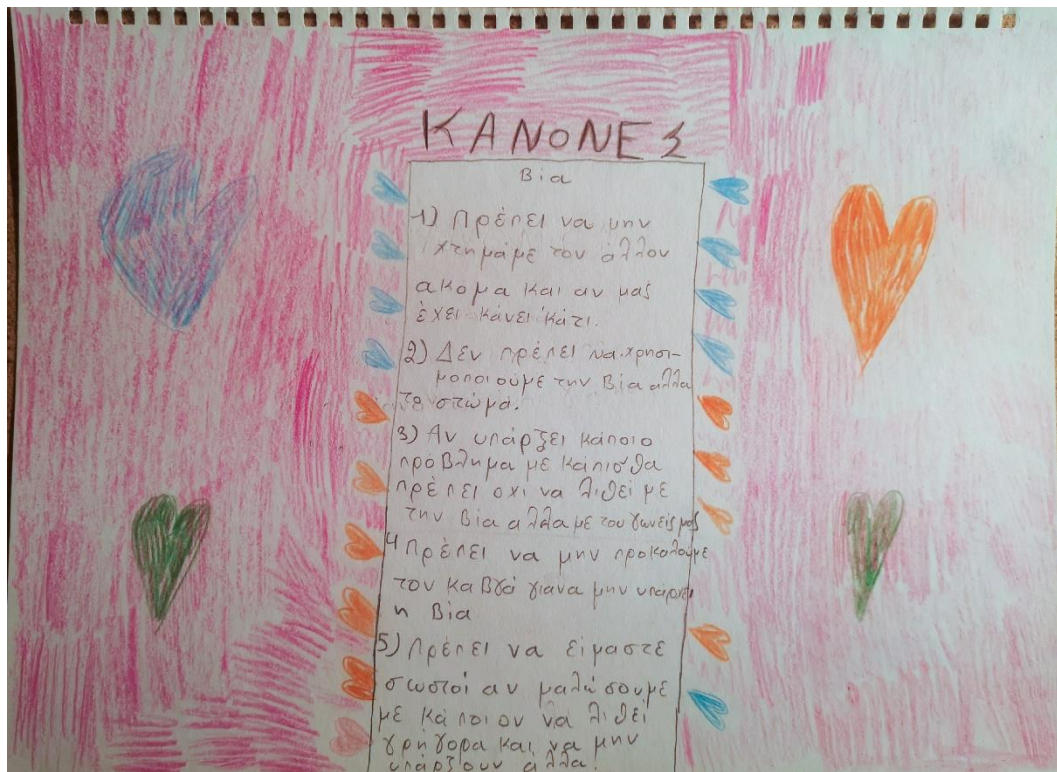 ΚΑΝΟΝΕΣ
Βία
1) Πρέπει να μην
χτημάμε τον άλλον
ακομα και αν μας
έχει κάνει κάτι.
2) Δεν πρέπει να χρησι-
μοποιούμε την Βία αλλα
το στώμα.
3) Αν υπάρξει κάποιο
πρόβλημα με κάπιο θα
πρέπει οχι να λιθεί με
την βία αλλα με του γωνείς μας
4 Πρέπει να μην προκαλούμε
τον καβγά γιανα μην υπάρχει
η Βία
5) Πρέπει να είμαστε
σωστοί αν μαλώσουμε
με κάποιον να λιθεί
γρήγορα και να μην
υπάρξουν αλλα!